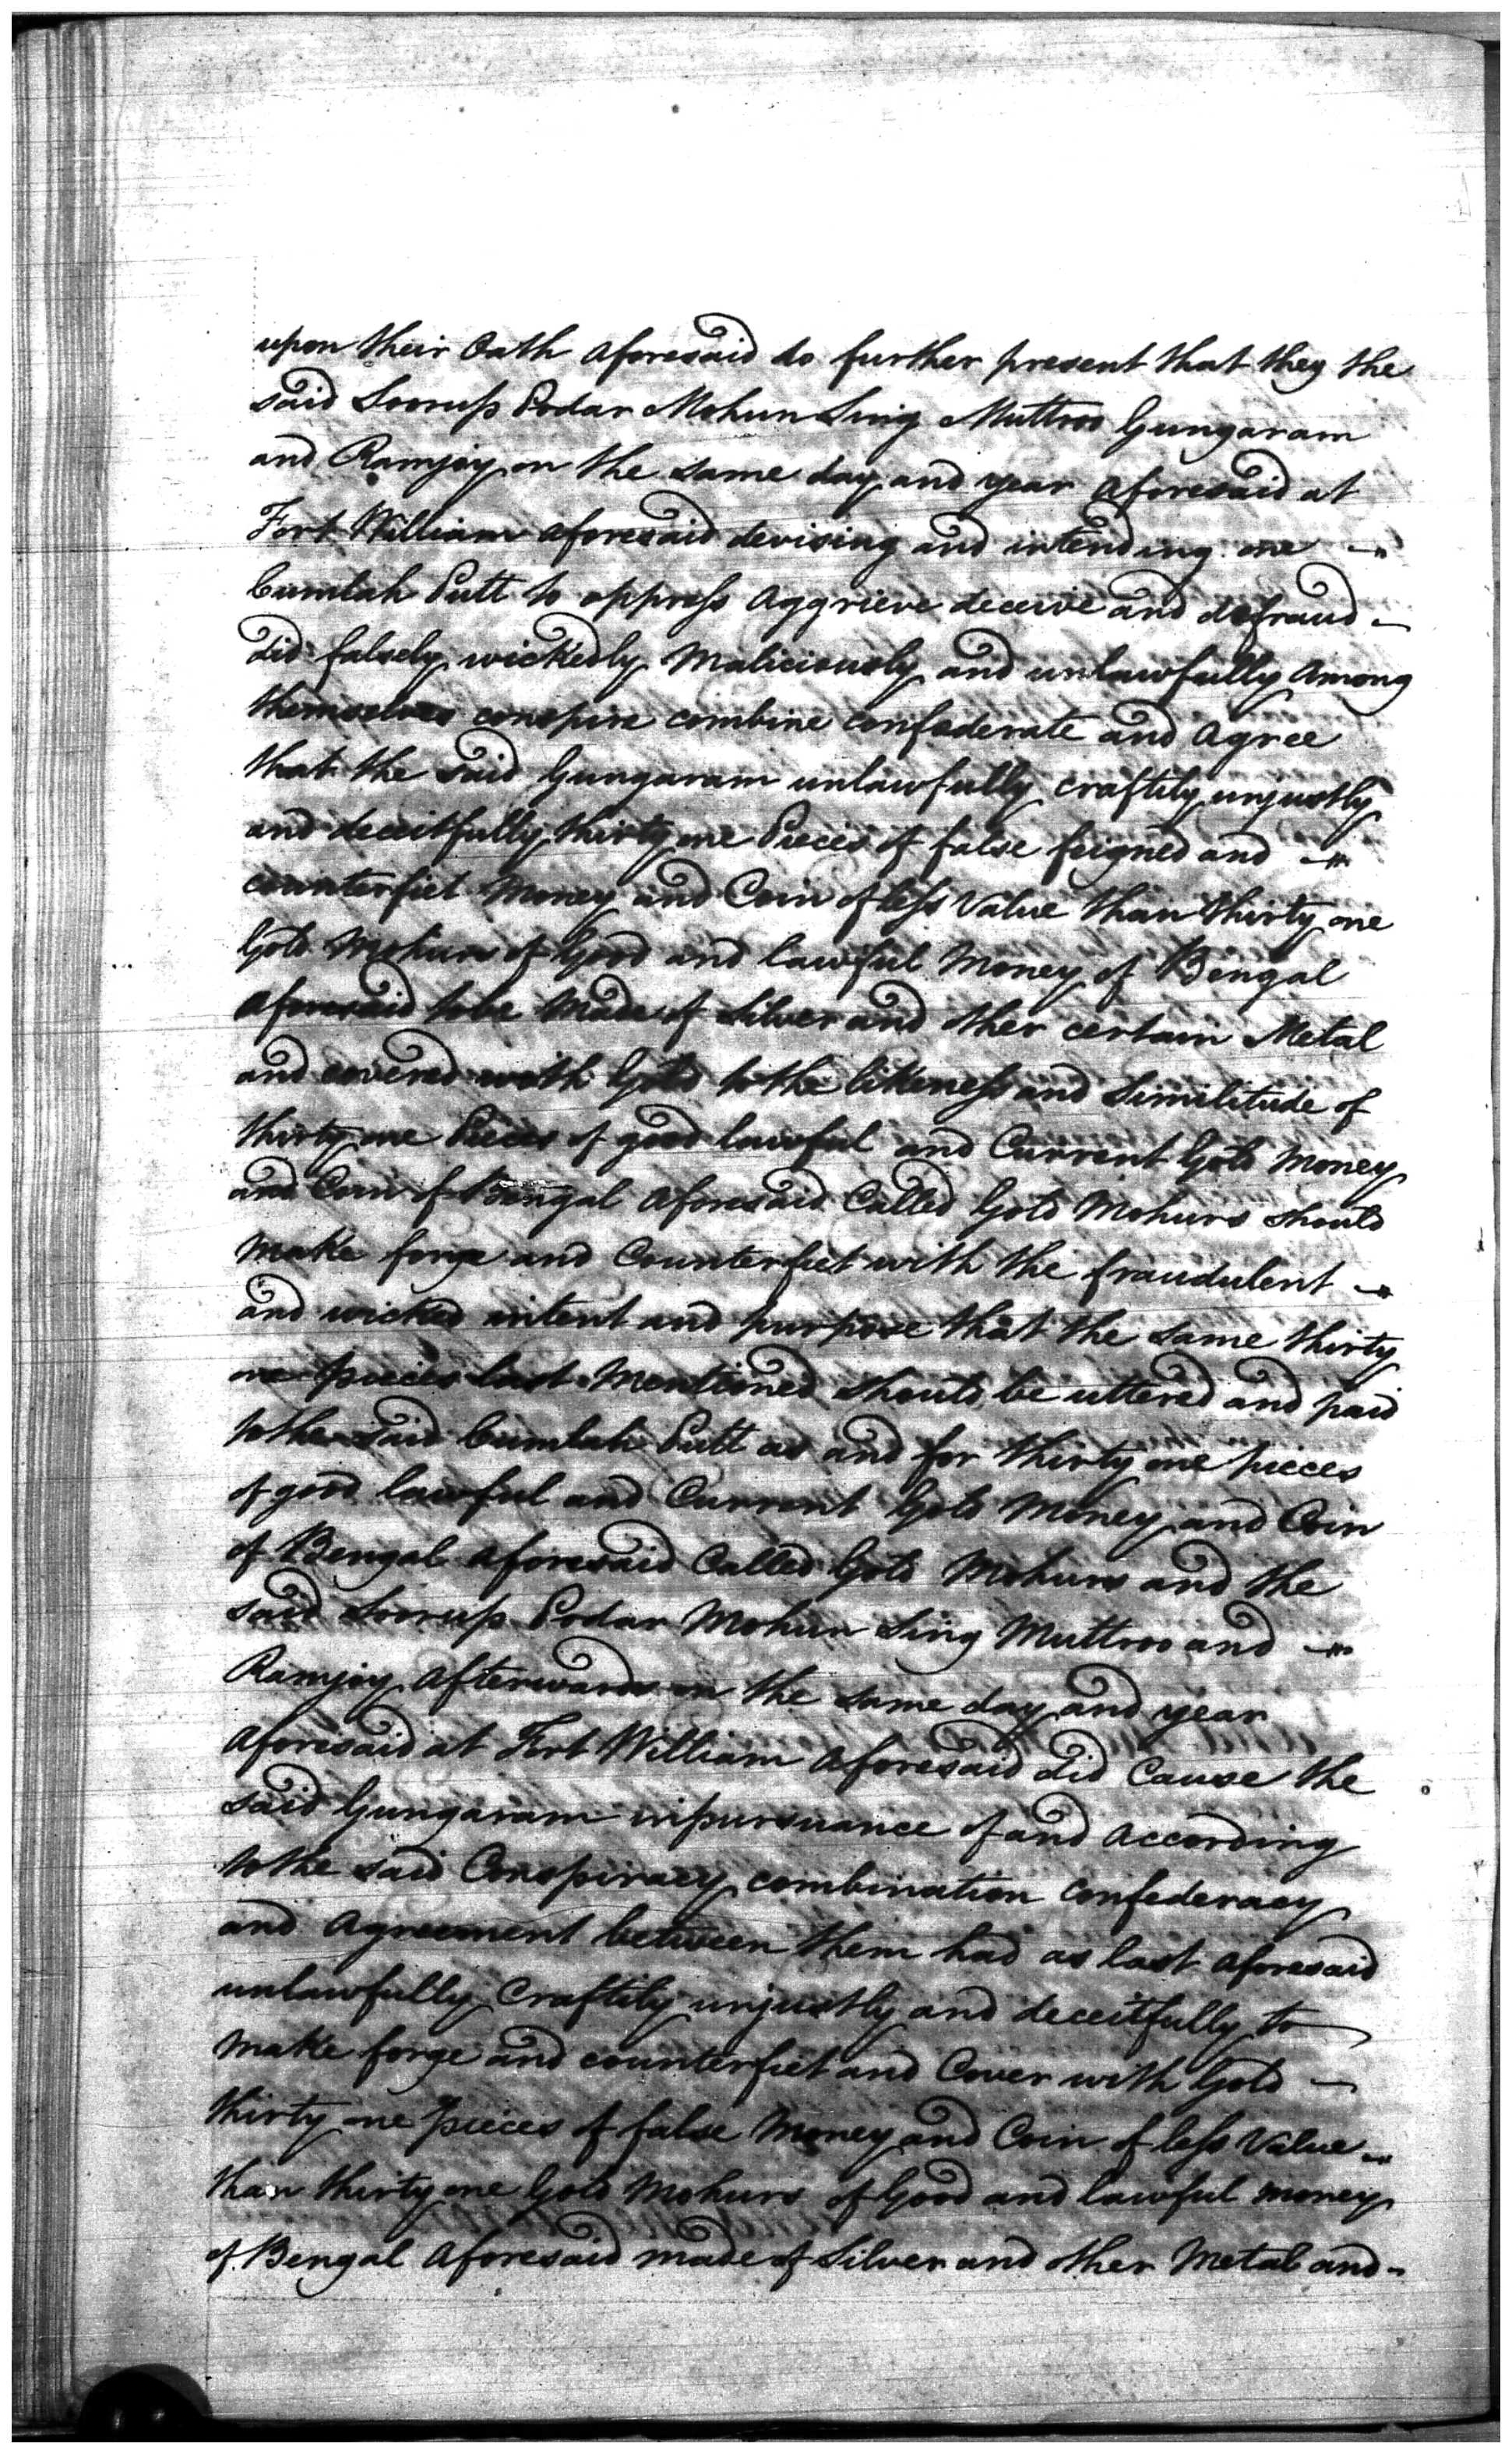 upon their Oath aforesaid do further present that they the
said Soorup Podar Mohun Sing Muttroo Gungaram
and Ramjoy on the same day and year aforesaid at
Fort William aforesaid devising and intending one
Cumlah Putt to oppress Aggrieve deceive and defraud
did falsely wickedly Maliciously and unlawfully Among
themselves conspire combine confederate and Agree
that the said Gungaram unlawfully craftily unjustly
and deceitfully thirty one Pieces of false feigned and
counterfiet Money and Coin of less Value than thirty one
Gold Mohurs of Good and lawful Money of Bengal
aforesaid to be Made of Silver and other certain Metal
and covered with Gold to the likeness and Similitude of
thirty one Pieces of good lawful and Current Gold Money
and Coin of Bengal aforesaid Called Gold Mohurs should
Make forge and Counterfiet with the fraudulent
and wicked intent and purpose that the same thirty
one pieces last Mentioned should be uttered and paid
to the said Cumlah Putt as and for thirty one pieces
of good lawful and Current Gold Money and Coin
of Bengal aforesaid Called Gold Mohurs and the
said Soorup Podar Mohun Sing Muttroo and
Ramjoy Afterwards on the same day and year
Aforesaid at Fort William aforesaid did Cause the
said Gungaram in pursuance of and According
to the said Conspiracy combination confederacy
and Agreement between them had as last aforesaid
unlawfully Craftily unjustly and deceitfully to
Make forge and counterfiet and Cover with Gold
thirty one pieces of false Money and Coin of less Value
than thirty one Gold Mohurs of Good and lawful money
of Bengal Aforesaid made of Silver and other Metal and